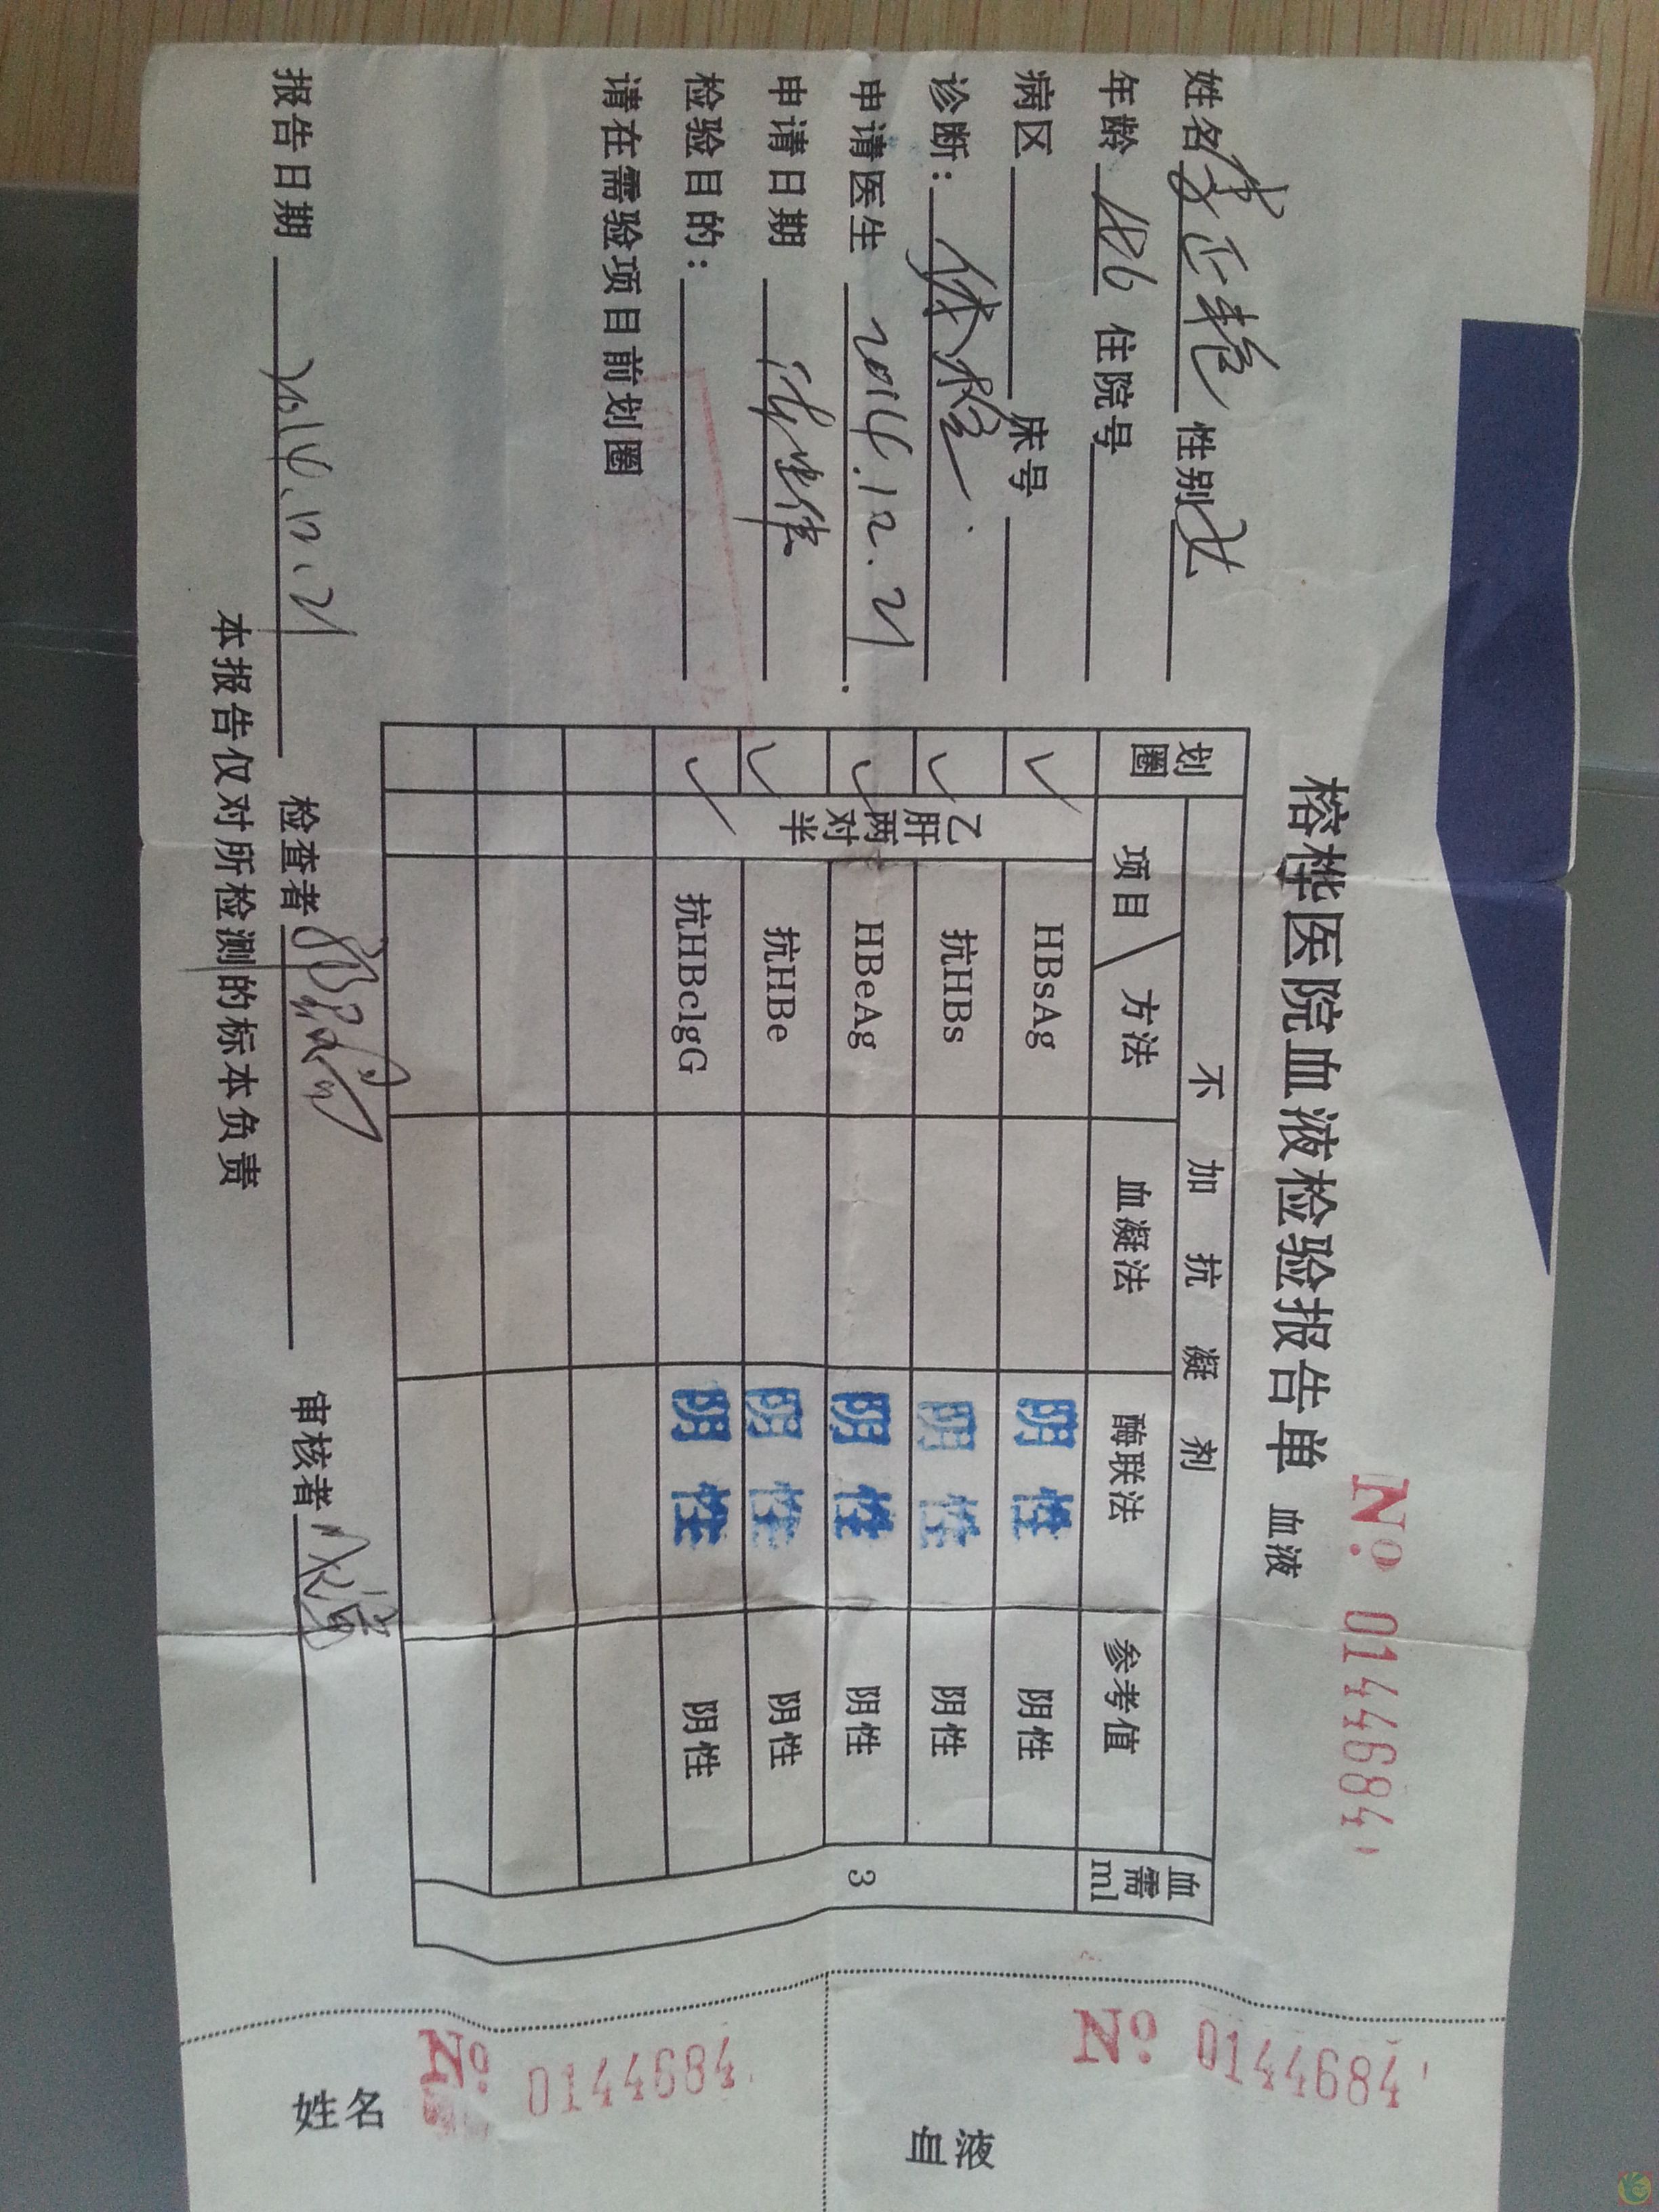 榕桦医院血液检验报告单 血液
No: 0144684
姓名 性别 女
年龄 46 住院号
病区 床号
诊断: 体检
申请医生 2014.12.21
申请日期
检验目的:
请在需验项目前划圈
划圈 不加抗凝剂 血需ml
项目\方法 血凝法 酶联法 参考值
乙肝两对半 3
✓ HBsAg 阴性 阴性
✓ 抗HBs 阴性 阴性
✓ HBeAg 阴性 阴性
✓ 抗HBe 阴性 阴性
✓ 抗HBclgG 阴性 阴性
报告日期 2014.12.21 检查者 审核者
本报告仅对所检测的标本负责
No: 0144684
血液
No: 0144684
姓名